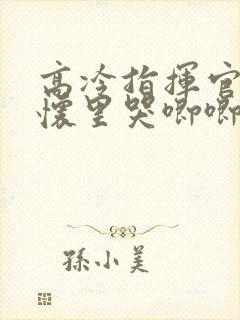 高冷指揮官
懷里哭唧唧
孫小美